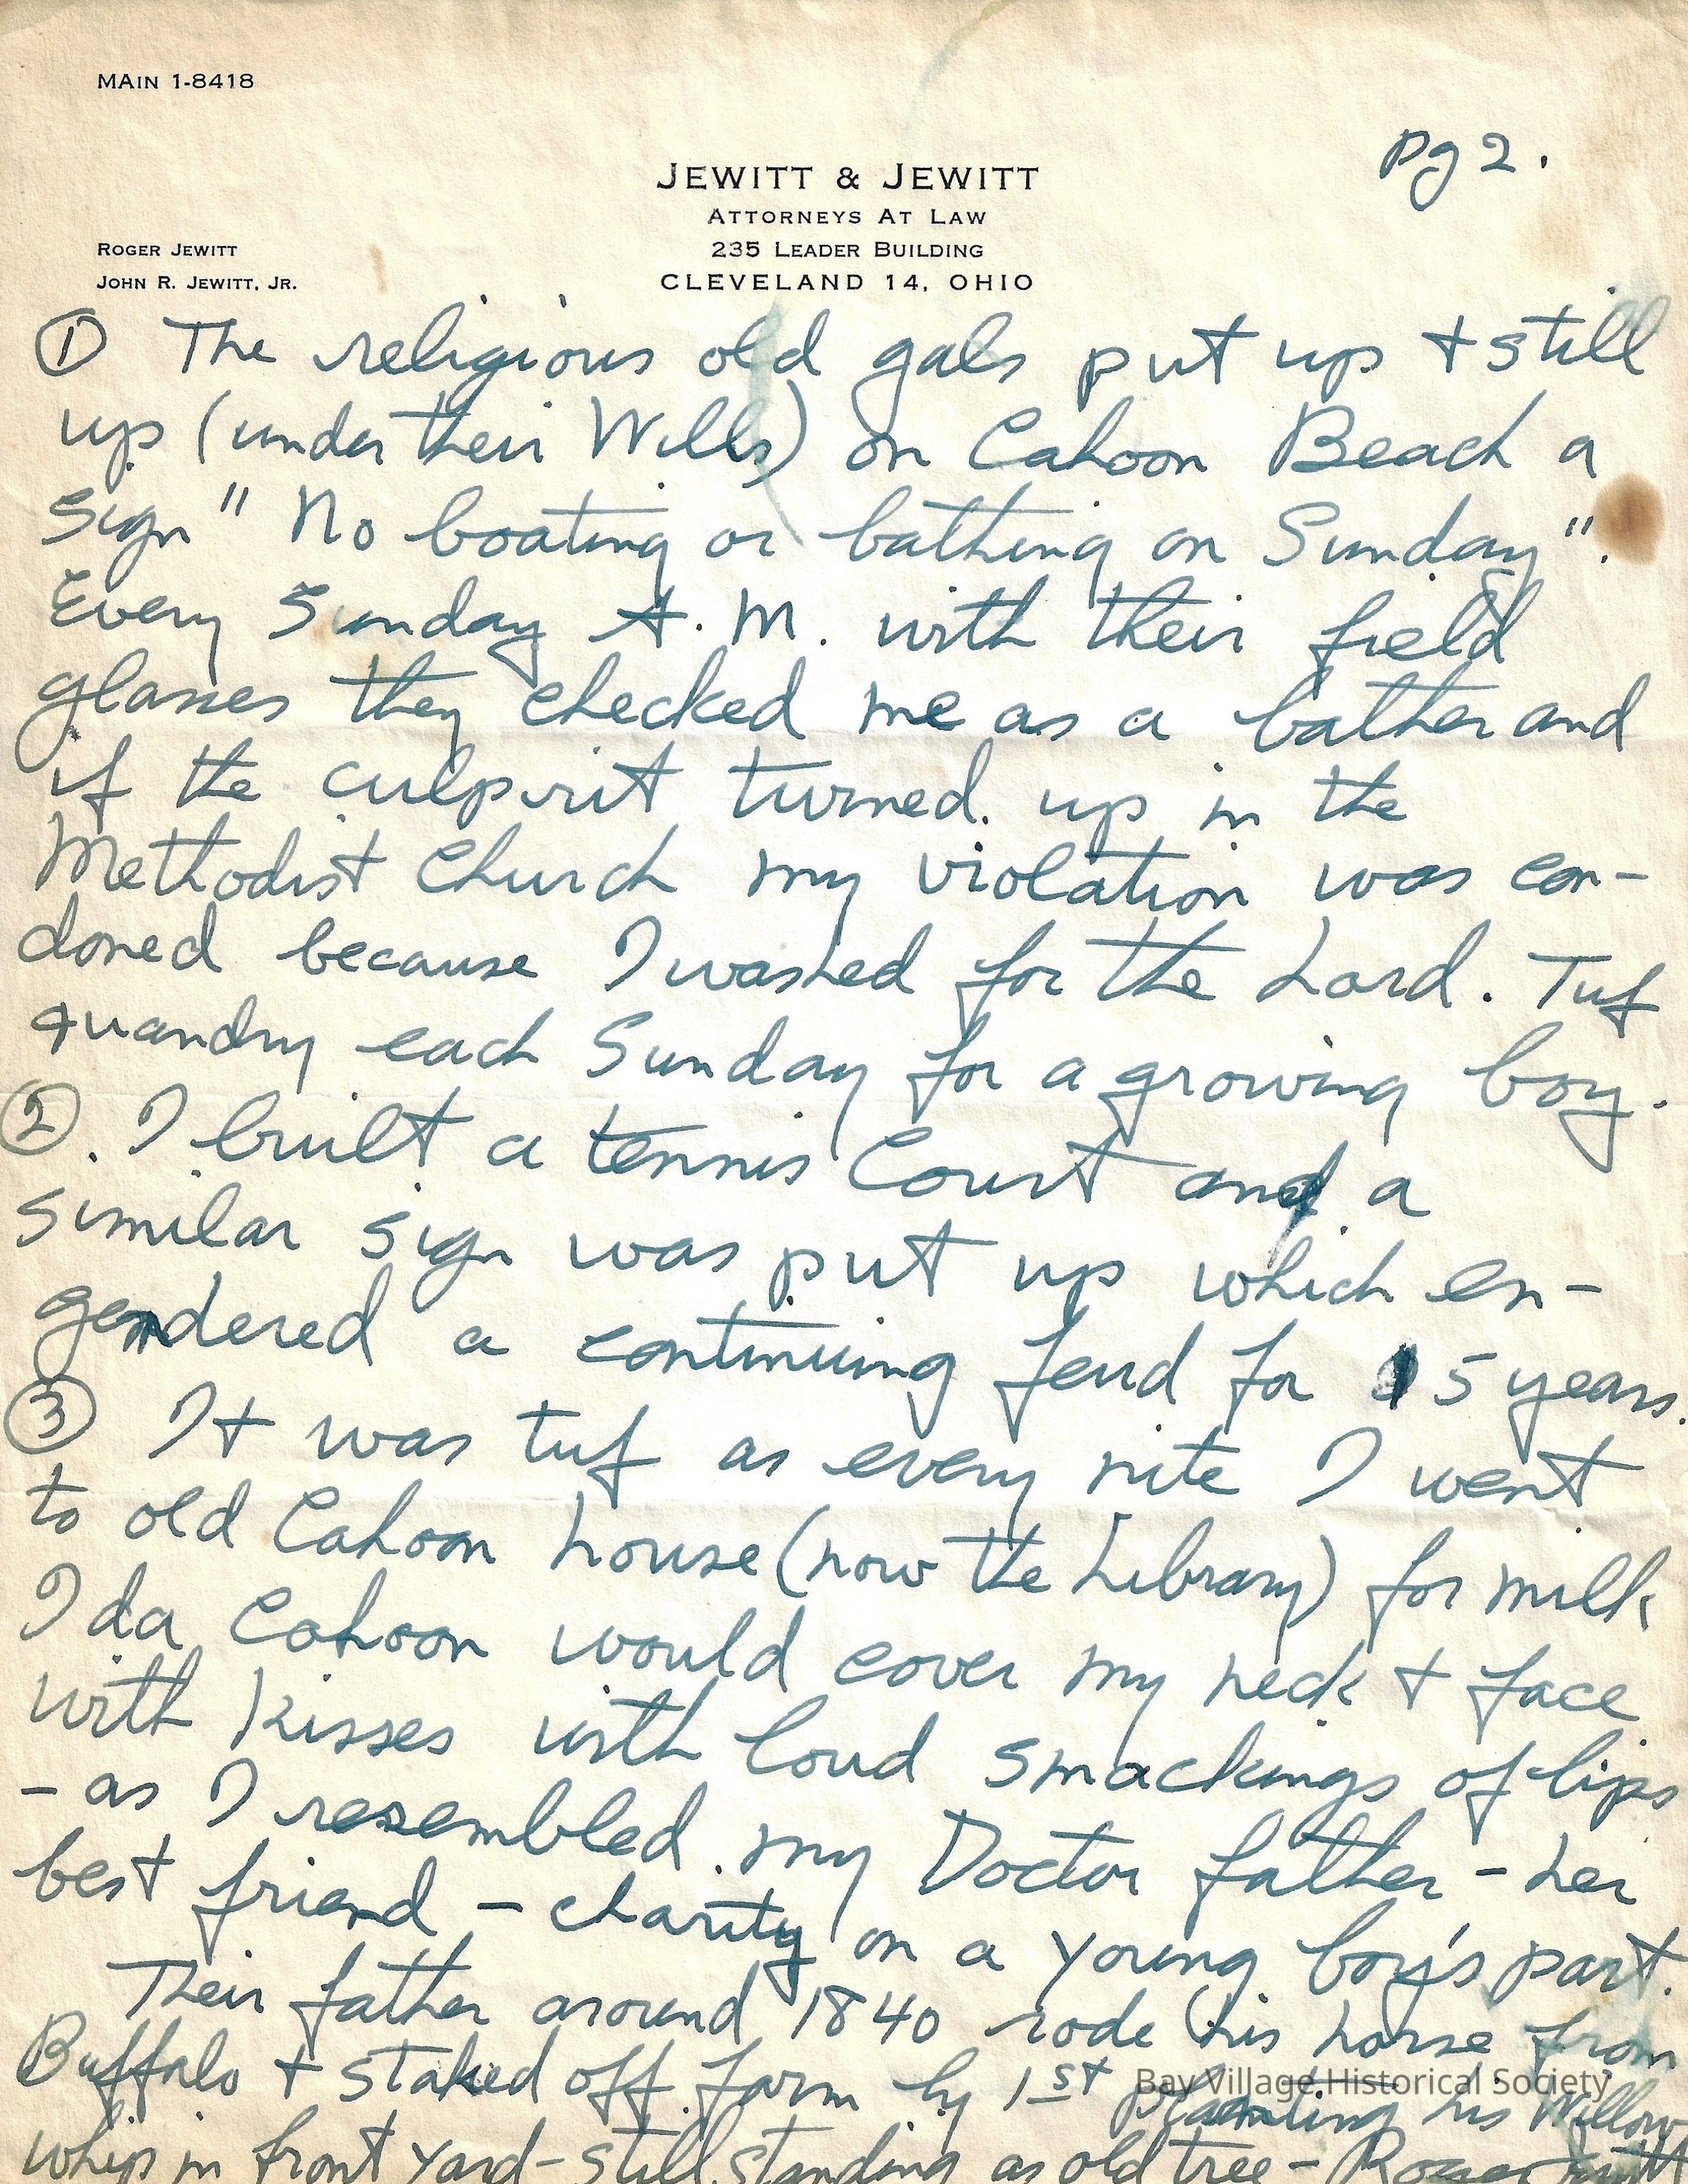 MAIN 1-8418
pg 2.
JEWITT & JEWITT
ATTORNEYS AT LAW
235 LEADER BUILDING
CLEVELAND 14, OHIO
ROGER JEWITT
JOHN R. JEWITT, JR.
① The religious old gals put up + still
up (under their Wills) on Cahoon Beach a
sign " No boating or bathing on Sunday".
Every Sunday A.M. with their field
glasses they checked me as a bather and
if the culpurit turned up in the
Methodist Church my violation was con-
doned because I washed for the Lord. Tuf
quandry each Sunday for a growing boy.
②. I built a tennis Court and a
similar sign was put up which en-
gendered a continuing feud for 15 years.
③ It was tuf as every nite I went
to old Cahoon house (now the Library) for milk
Ida Cahoon would cover my neck + face
with kisses with loud smackings of lips
- as I resembled my Doctor father - her
best friend - charity on a young boy's part.
Their father around 1840 rode his horse from
Buffalo + staked off farm by 1st planting his Willow
whip in front yard - still standing as old tree - Roger
Bay Village Historical Society